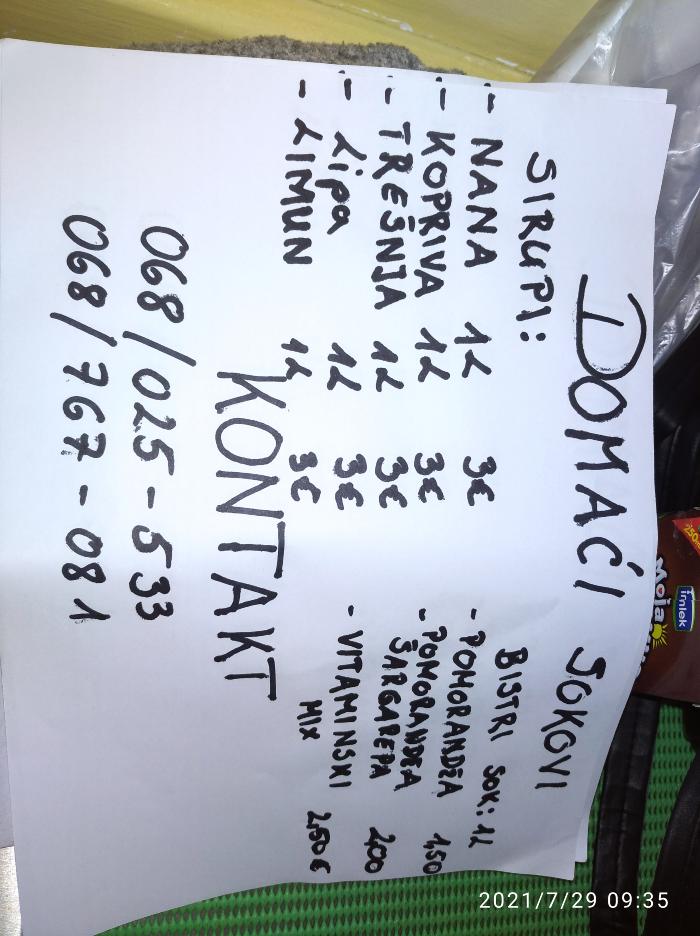 DOMAĆI SOKOVI
SIRUPI:
- NANA 1L 3€
- KOPRIVA 1L 3€
- TREŠNJA 1L 3€
- Lipa 1L 3€
- LIMUN 1L 3€
BISTRI SOK: 1L
- POMORANDŽA 1,50
- POMORANDŽA
ŠARGAREPA 2,00
- VITAMINSKI
MIX 2,50€
KONTAKT
068/025-533
068/767-081
250
imlek
Moja
2021/7/29 09:35